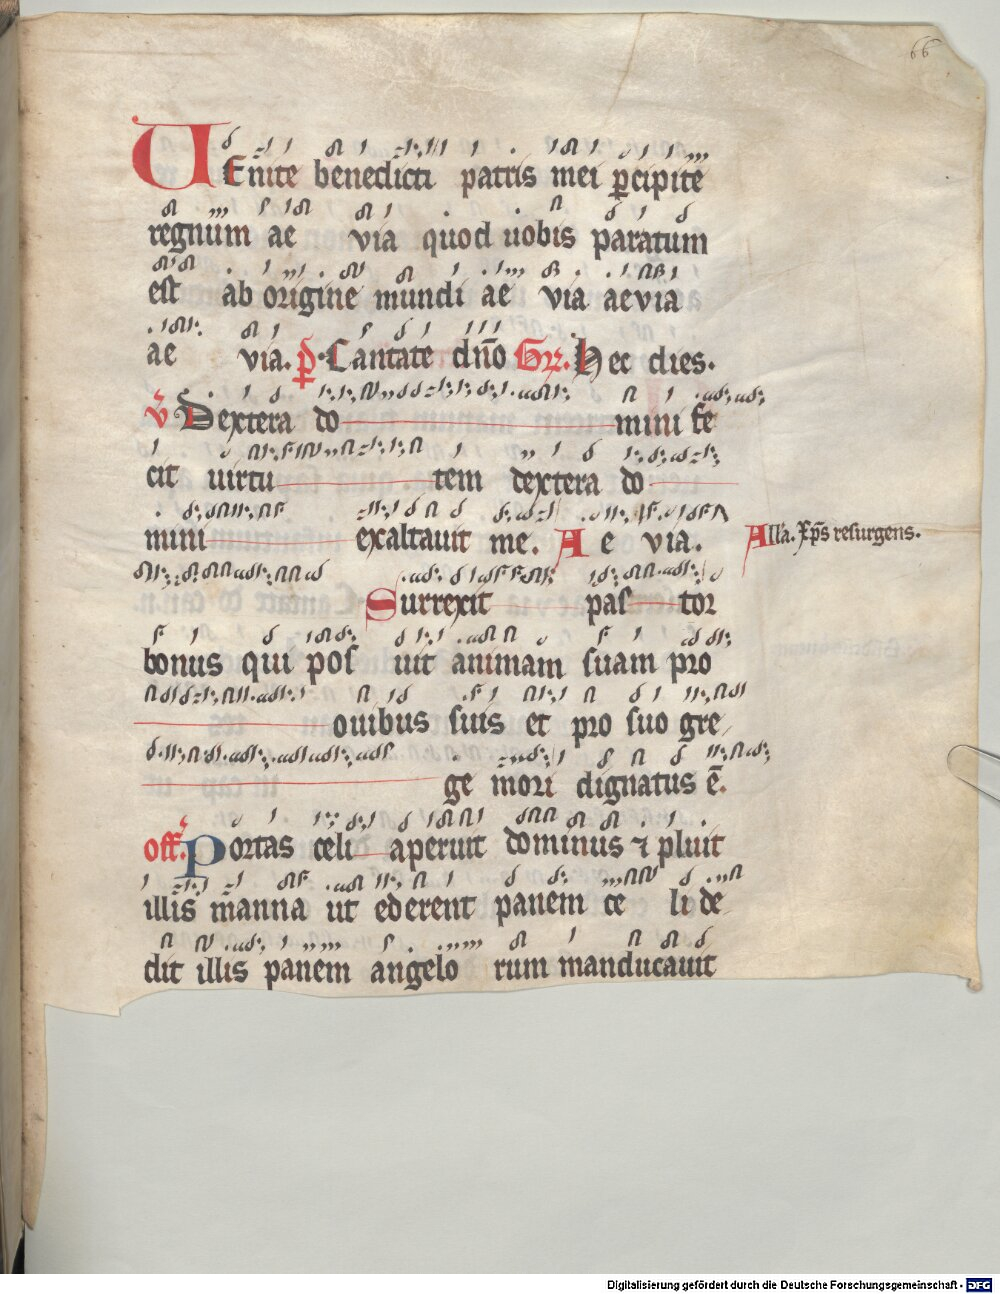 66
UEnite benedicti patris mei p̲cipite
regnum ae via quod uobis paratum
est ab origine mundi ae via aevia
ae via. p̄. Cantate dn̄o Gr. Hec dies.
v̄ Dextera do mini fe
cit uirtu tem dextera do
mini exaltauit me. A e via. All'a. Xp̄s resurgens.
Surrexit pas tor
bonus qui pos uit animam suam pro
ouibus suis et pro suo gre
ge mori dignatus ē.
off. Portas celi aperuit dominus ⁊ pluit
illis manna ut ederent panem ce li de
dit illis panem angelo rum manducauit
Digitalisierung gefördert durch die Deutsche Forschungsgemeinschaft - DFG